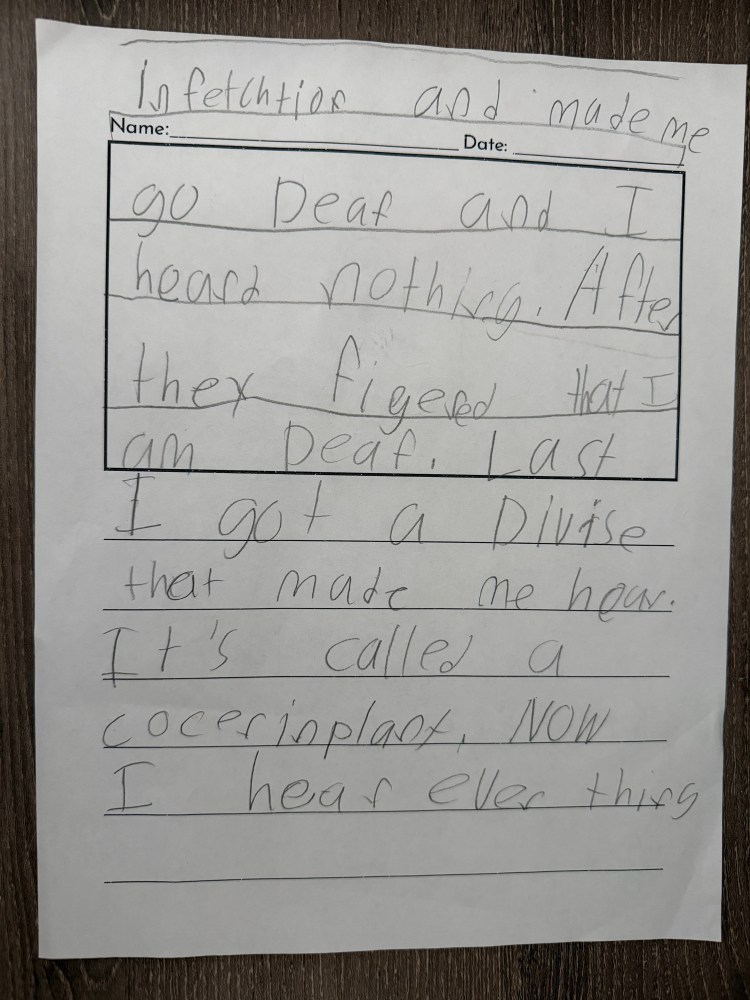 Infetchtion and made me
Name: Date:
go Deaf and I
heard nothing. After
they figered that I
am Deaf. Last
I got a Divise
that made me hear.
It's called a
cocerinplant. NOW
I hear ever thing